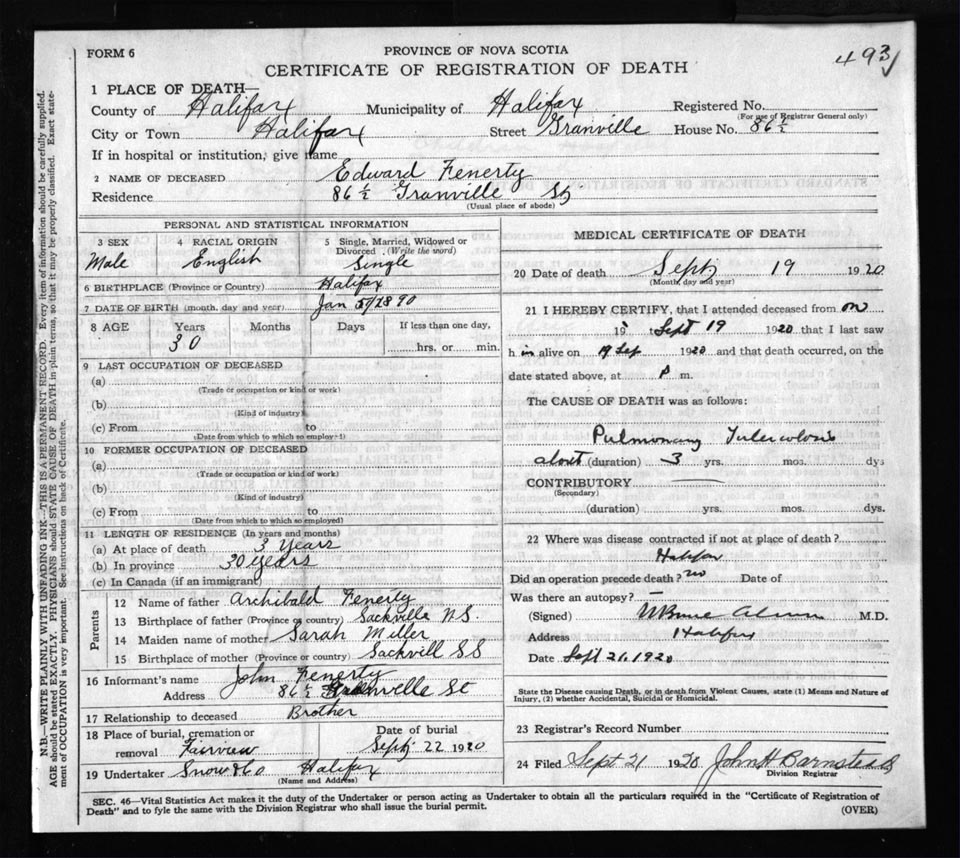 FORM 6
PROVINCE OF NOVA SCOTIA
493
CERTIFICATE OF REGISTRATION OF DEATH
1 PLACE OF DEATH—
County of Halifax Municipality of Halifax Registered No.
(For use of Registrar General only)
City or Town Halifax Street Granville House No. 86½
If in hospital or institution, give name
2 NAME OF DECEASED Edward Fenerty
Residence 86½ Granville St
(Usual place of abode)
PERSONAL AND STATISTICAL INFORMATION
3 SEX 4 RACIAL ORIGIN 5 Single, Married, Widowed or Divorced (Write the word)
Male English Single
6 BIRTHPLACE (Province or Country) Halifax
7 DATE OF BIRTH (month, day and year) Jan 1890
8 AGE Years Months Days If less than one day,
30 hrs. or min.
9 LAST OCCUPATION OF DECEASED
(a)
(Trade or occupation or kind or work)
(b)
(Kind of industry)
(c) From to
(Date from which to which so employed)
10 FORMER OCCUPATION OF DECEASED
(a)
(Trade or occupation or kind of work)
(b)
(Kind of industry)
(c) From to
(Date from which to which so employed)
11 LENGTH OF RESIDENCE (In years and months)
(a) At place of death 3 Years
(b) In province 30 years
(c) In Canada (if an immigrant)
Parents
12 Name of father Archibald Fenerty
13 Birthplace of father (Province or country) Sackville N.S.
14 Maiden name of mother Sarah Miller
15 Birthplace of mother (Province or country) Sackvill S S
16 Informant's name John Fenerty
Address 86½ Granville St
17 Relationship to deceased Brother
18 Place of burial, cremation or removal Fairview
Date of burial
Sept 22 1920
19 Undertaker Snow & Co Halifax
(Name and Address)
MEDICAL CERTIFICATE OF DEATH
20 Date of death Sept 19 1920
(Month, day and year)
21 I HEREBY CERTIFY, that I attended deceased from on
19 Sept 19 1920 that I last saw
h im alive on 19 Sep 1920 and that death occurred, on the
date stated above, at P m.
The CAUSE OF DEATH was as follows:
Pulmonary Tuberculosis
about (duration) 3 yrs. mos. dys
CONTRIBUTORY —
(Secondary)
(duration) yrs. mos. dys.
22 Where was disease contracted if not at place of death?
Halifax
Did an operation precede death? no Date of
Was there an autopsy? —
(Signed) M.D.
Address Halifax
Date Sept 21, 1920
State the Disease causing Death, or in death from Violent Causes, state (1) Means and Nature of
Injury, (2) whether Accidental, Suicidal or Homicidal.
23 Registrar's Record Number
24 Filed Sept 21 1920 John H Barnstead
Division Registrar
SEC. 46—Vital Statistics Act makes it the duty of the Undertaker or person acting as Undertaker to obtain all the particulars required in the "Certificate of Registration of
Death" and to fyle the same with the Division Registrar who shall issue the burial permit.
(OVER)
N.B.—WRITE PLAINLY WITH UNFADING INK—THIS IS A PERMANENT RECORD. Every item of information should be carefully supplied.
AGE should be stated EXACTLY. PHYSICIANS should STATE CAUSE OF DEATH in plain terms, so that it may be properly classified. Exact state-
ment of OCCUPATION is very important. See instructions on back of Certificate.